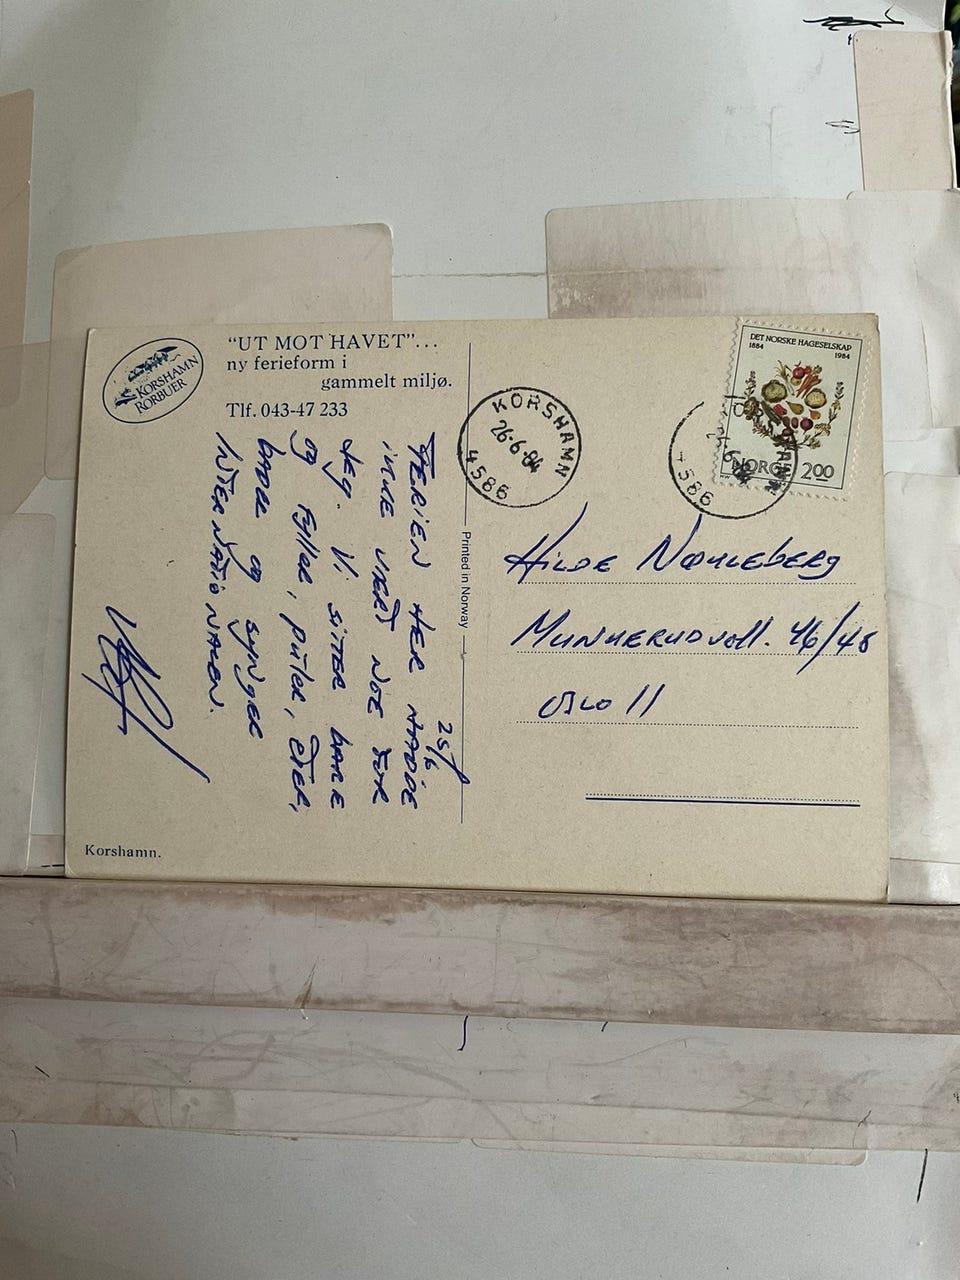 KORSHAMN
RORBUER
"UT MOT HAVET"...
ny ferieform i
gammelt miljø.
Tlf. 043-47 233
25/6
FERIEN HER HADDE
IKKE VÆRT NOE FOR
deg. Vi SITTER BARE
og FYLLER, PULER, ETER,
BADER og SYNGER
INTERNATIONALEN.
Korshamn.
Printed in Norway
KORSHAMN
26-6-84
4586
DET NORSKE HAGESELSKAP
1884 1984
NORGE 200
4586
HILDE NØKLEBERG
MUNKERUDvoll. 46/48
OSLO 11